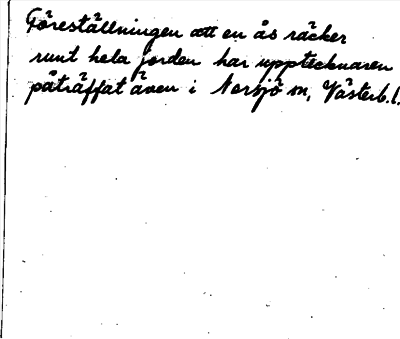 Föreställningen att en ås räcker
runt hela jorden har upptecknaren
påträffat även i Norsjö sn, Västerb.l.